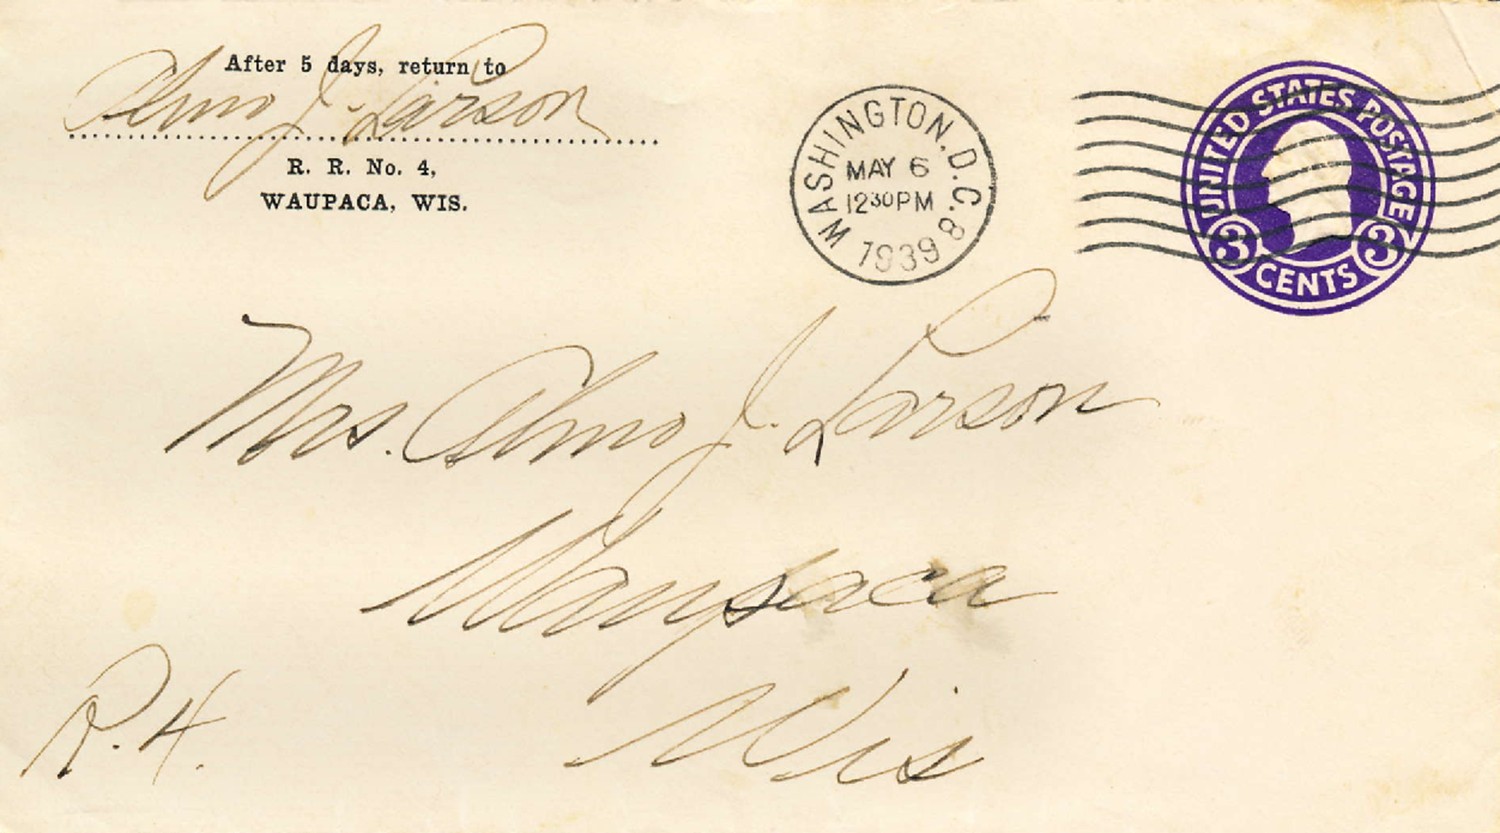 After 5 days, return to
Almo J. Larson
R. R. No. 4,
WAUPACA, WIS.
WASHINGTON, D.C. 8
MAY 6
12 30 PM
1939
UNITED STATES POSTAGE
3 CENTS 3
Mrs. Almo J. Larson
Waupaca
Wis
R. 4.